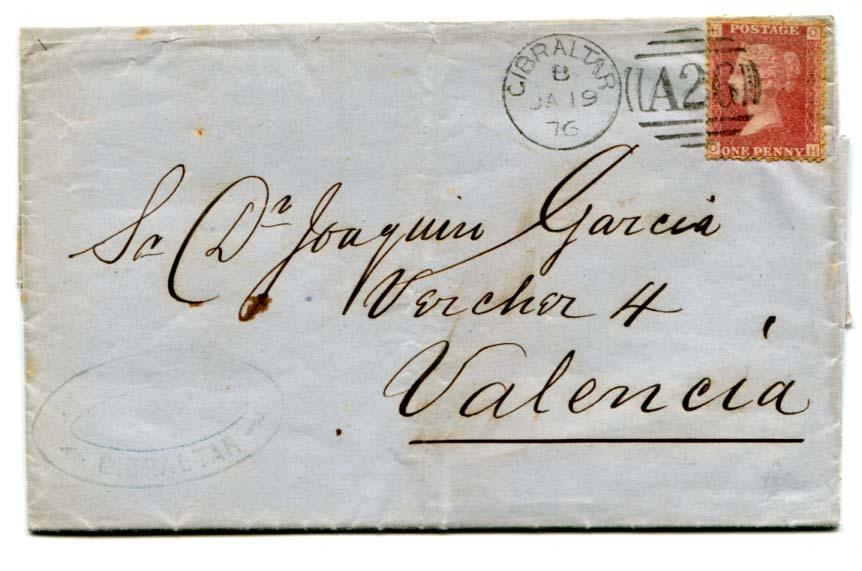 GIBRALTAR
B
JA 19
76
A26
H O
POSTAGE
O H
ONE PENNY
Sr Dn Joaquin Garcia
Vercher 4
Valencia
GIBRALTAR